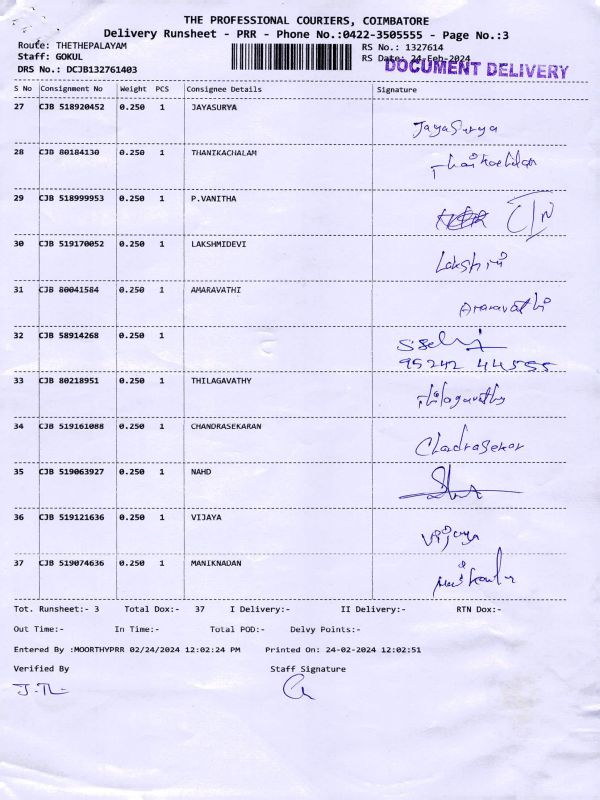 THE PROFESSIONAL COURIERS, COIMBATORE
Delivery Runsheet - PRR - Phone No.:0422-3505555 - Page No.:3
Route: THETHEPALAYAM RS No.: 1327614
Staff: GOKUL RS Date: 24-Feb-2024
DRS No.: DCJB132761403 DOCUMENT DELIVERY
S No Consignment No Weight PCS Consignee Details Signature
27 CJB 518920452 0.250 1 JAYASURYA
Jayasurya
28 CJB 80184130 0.250 1 THANIKACHALAM
29 CJB 518999953 0.250 1 P.VANITHA
30 CJB 519170052 0.250 1 LAKSHMIDEVI
Lakshmi
31 CJB 80041584 0.250 1 AMARAVATHI
Amaravathi
32 CJB 58914268 0.250 1
S.Selvi
95242 44555
33 CJB 80218951 0.250 1 THILAGAVATHY
Thilagavathy
34 CJB 519161088 0.250 1 CHANDRASEKARAN
Chandrasekar
35 CJB 519063927 0.250 1 NAHD
36 CJB 519121636 0.250 1 VIJAYA
Vijaya
37 CJB 519074636 0.250 1 MANIKNADAN
Tot. Runsheet:- 3 Total Dox:- 37 I Delivery:- II Delivery:- RTN Dox:-
Out Time:- In Time:- Total POD:- Delvy Points:-
Entered By :MOORTHYPRR 02/24/2024 12:02:24 PM Printed On: 24-02-2024 12:02:51
Verified By Staff Signature